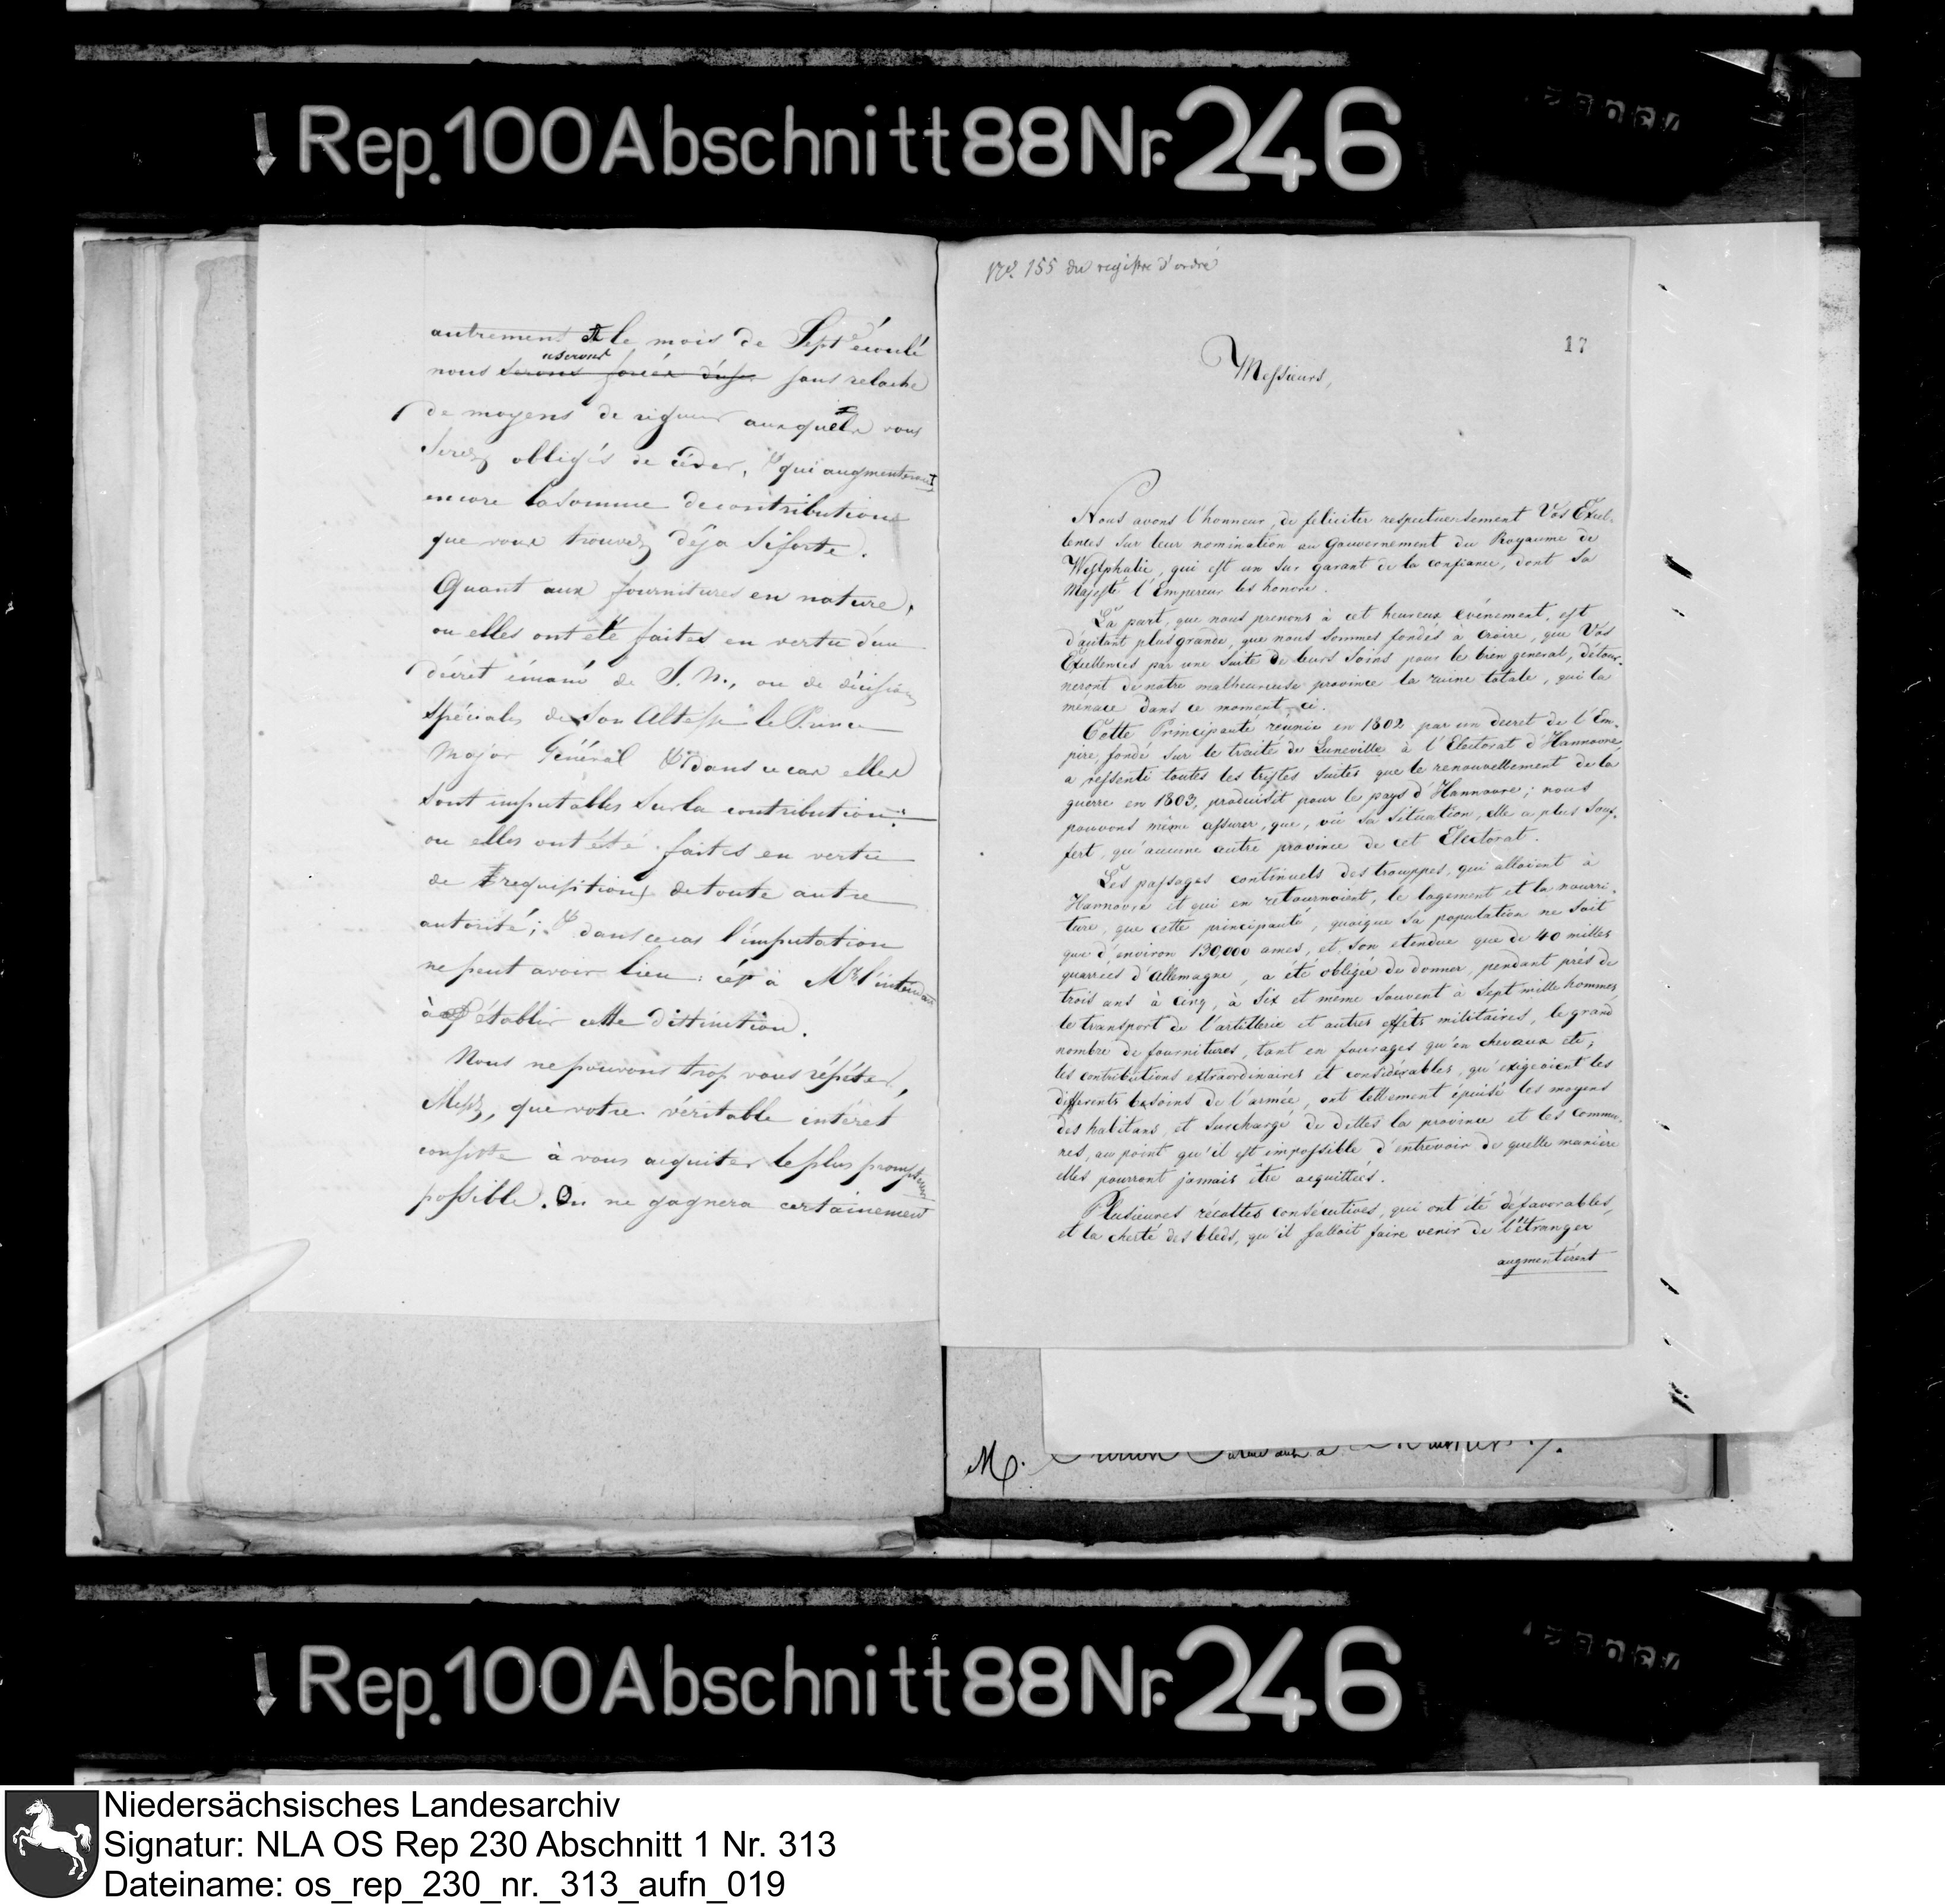 Rep. 100 Abschnitt 88 Nr. 246
autrement & le mois de Sept.e écoulé
userons
nous serons forcés d'user sans relache
de moyens de rigueur auxquels vous
serez obligés de céder, & qui augmenteront
encore la somme de contributions
que vous trouvez déja si forte.
Quant aux fournitures en nature,
ou elles ont été faites en vertu d'un
décret émané de S. M., ou de décisions
spéciales de Son Altesse le Prince
Major Général & dans ce cas elles
sont imputables sur la contribution:
ou elles ont été faites en vertu
de requisitions de toute autre
autorité; & dans ce cas l'imputation
ne peut avoir lieu: c'est à Mr l'intendant
à établir cette distinction.
Nous ne pouvons trop vous répéter,
Messrs, que votre véritable intéret
consiste à vous acquiter le plus promptement
possible. On ne gagnera certainement
No. 155 du registre d'ordre
17
Messieurs,
Nous avons l'honneur, de feliciter respectueusement Vos Excel-
lences sur leur nomination au Gouvernement du Royaume de
Westphalie, qui est un sur garant de la confiance, dont Sa
Majesté l'Empereur les honore.
La part, que nous prenons à cet heureux événement, est
d'autant plus grande, que nous sommes fondés à croire, que Vos
Excellences par une suite de leurs soins pour le bien general, détour-
neront de notre malheureuse province la ruine totale, qui la
menace dans ce moment-ci.
Cette Principauté réunie en 1802 par un decret de l'Em-
pire, fondé sur le traité de Luneville à l'Electorat d'Hannovre,
a ressenti toutes les tristes suites que le renouvellement de la
guerre en 1803, produisit pour le pays d'Hannovre; nous
pouvons même assurer, que, vû sa situation, elle a plus souf-
fert, qu'aucune autre province de cet Electorat.
Les passages continuels des trouppes, qui alloient à
Hannovre et qui en retournoient, le logement et la nourri-
ture, que cette principauté, quoique sa population ne soit
que d'environ 130,000 ames, et son etendue que de 40 milles
quarrées d'Allemagne, a été obligée de donner, pendant près de
trois ans à cinq, à six et même souvent à sept mille hommes,
le transport de l'artillerie et autres effèts militaires, le grand
nombre de fournitures, tant en fourages qu'en chevaux etc,
les contributions extraordinaires et considérables, qu'exigeoient les
differents besoins de l'armée, ont tellement épuisé les moyens
des habitans, et surchargé de dettes la province et les commu-
nes, au point qu'il est impossible d'entrevoir de quelle manière
elles pourront jamais être acquittées.
Plusieures récoltes consécutives, qui ont été défavorables,
et la cherté des bleds, qu'il falloit faire venir de l'étranger
augmentérent
M.
Rep. 100 Abschnitt 88 Nr. 246
Niedersächsisches Landesarchiv
Signatur: NLA OS Rep 230 Abschnitt 1 Nr. 313
Dateiname: os_rep_230_nr._313_aufn_019